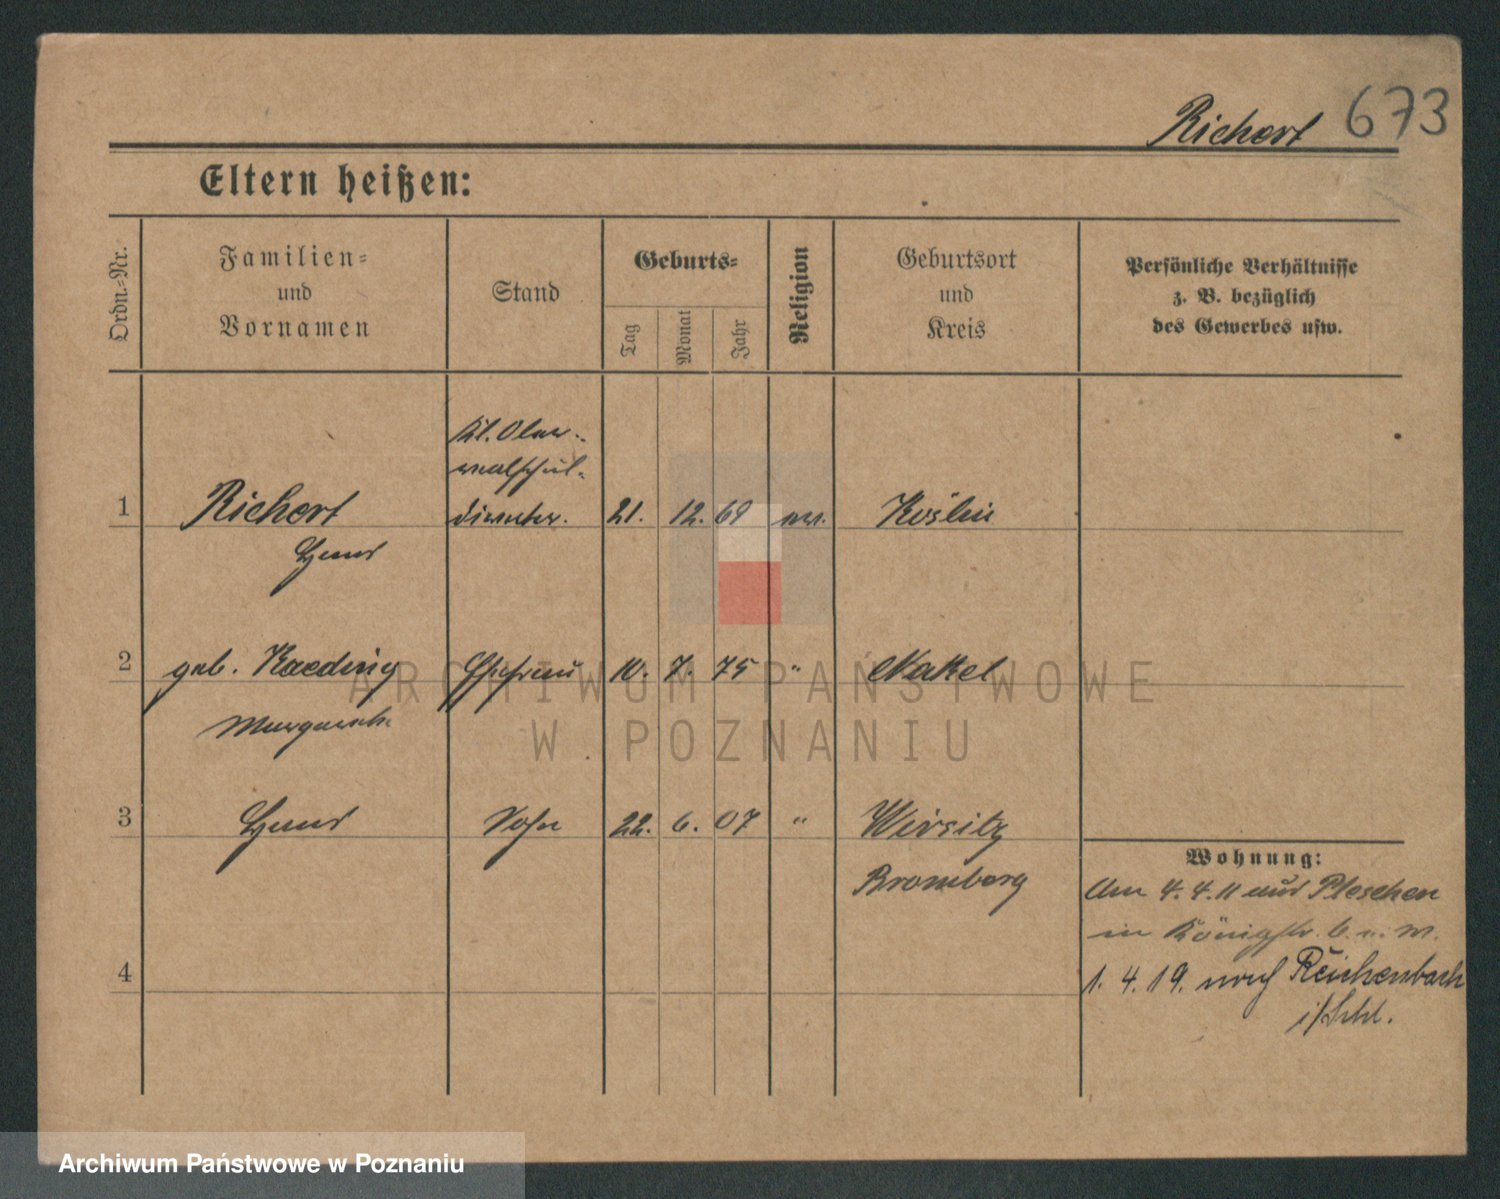 Richert 673
Eltern heißen:
Ordn.=Nr.
Familien=
und
Vornamen
Stand
Geburts=
Tag
Monat
Jahr
Religion
Geburtsort
und
Kreis
Persönliche Verhältnisse
z. B. bezüglich
des Gewerbes usw.
Kl. Ober-
realschul-
direktor.
1 Richert 21. 12. 69 ev. Köslin
Hans
2 geb. Kaeding Ehefrau 10. 7. 75 " Nakel
Margarete
3 Hans Sohn 22. 6. 07 " Wirsitz
Bromberg
Wohnung:
Am 4. 4. 11 aus Pleschen
in Königstr. 6. w.
1. 4. 19. nach Reichenbach
i/Schl.
4
ARCHIWUM PAŃSTWOWE
W POZNANIU
Archiwum Państwowe w Poznaniu